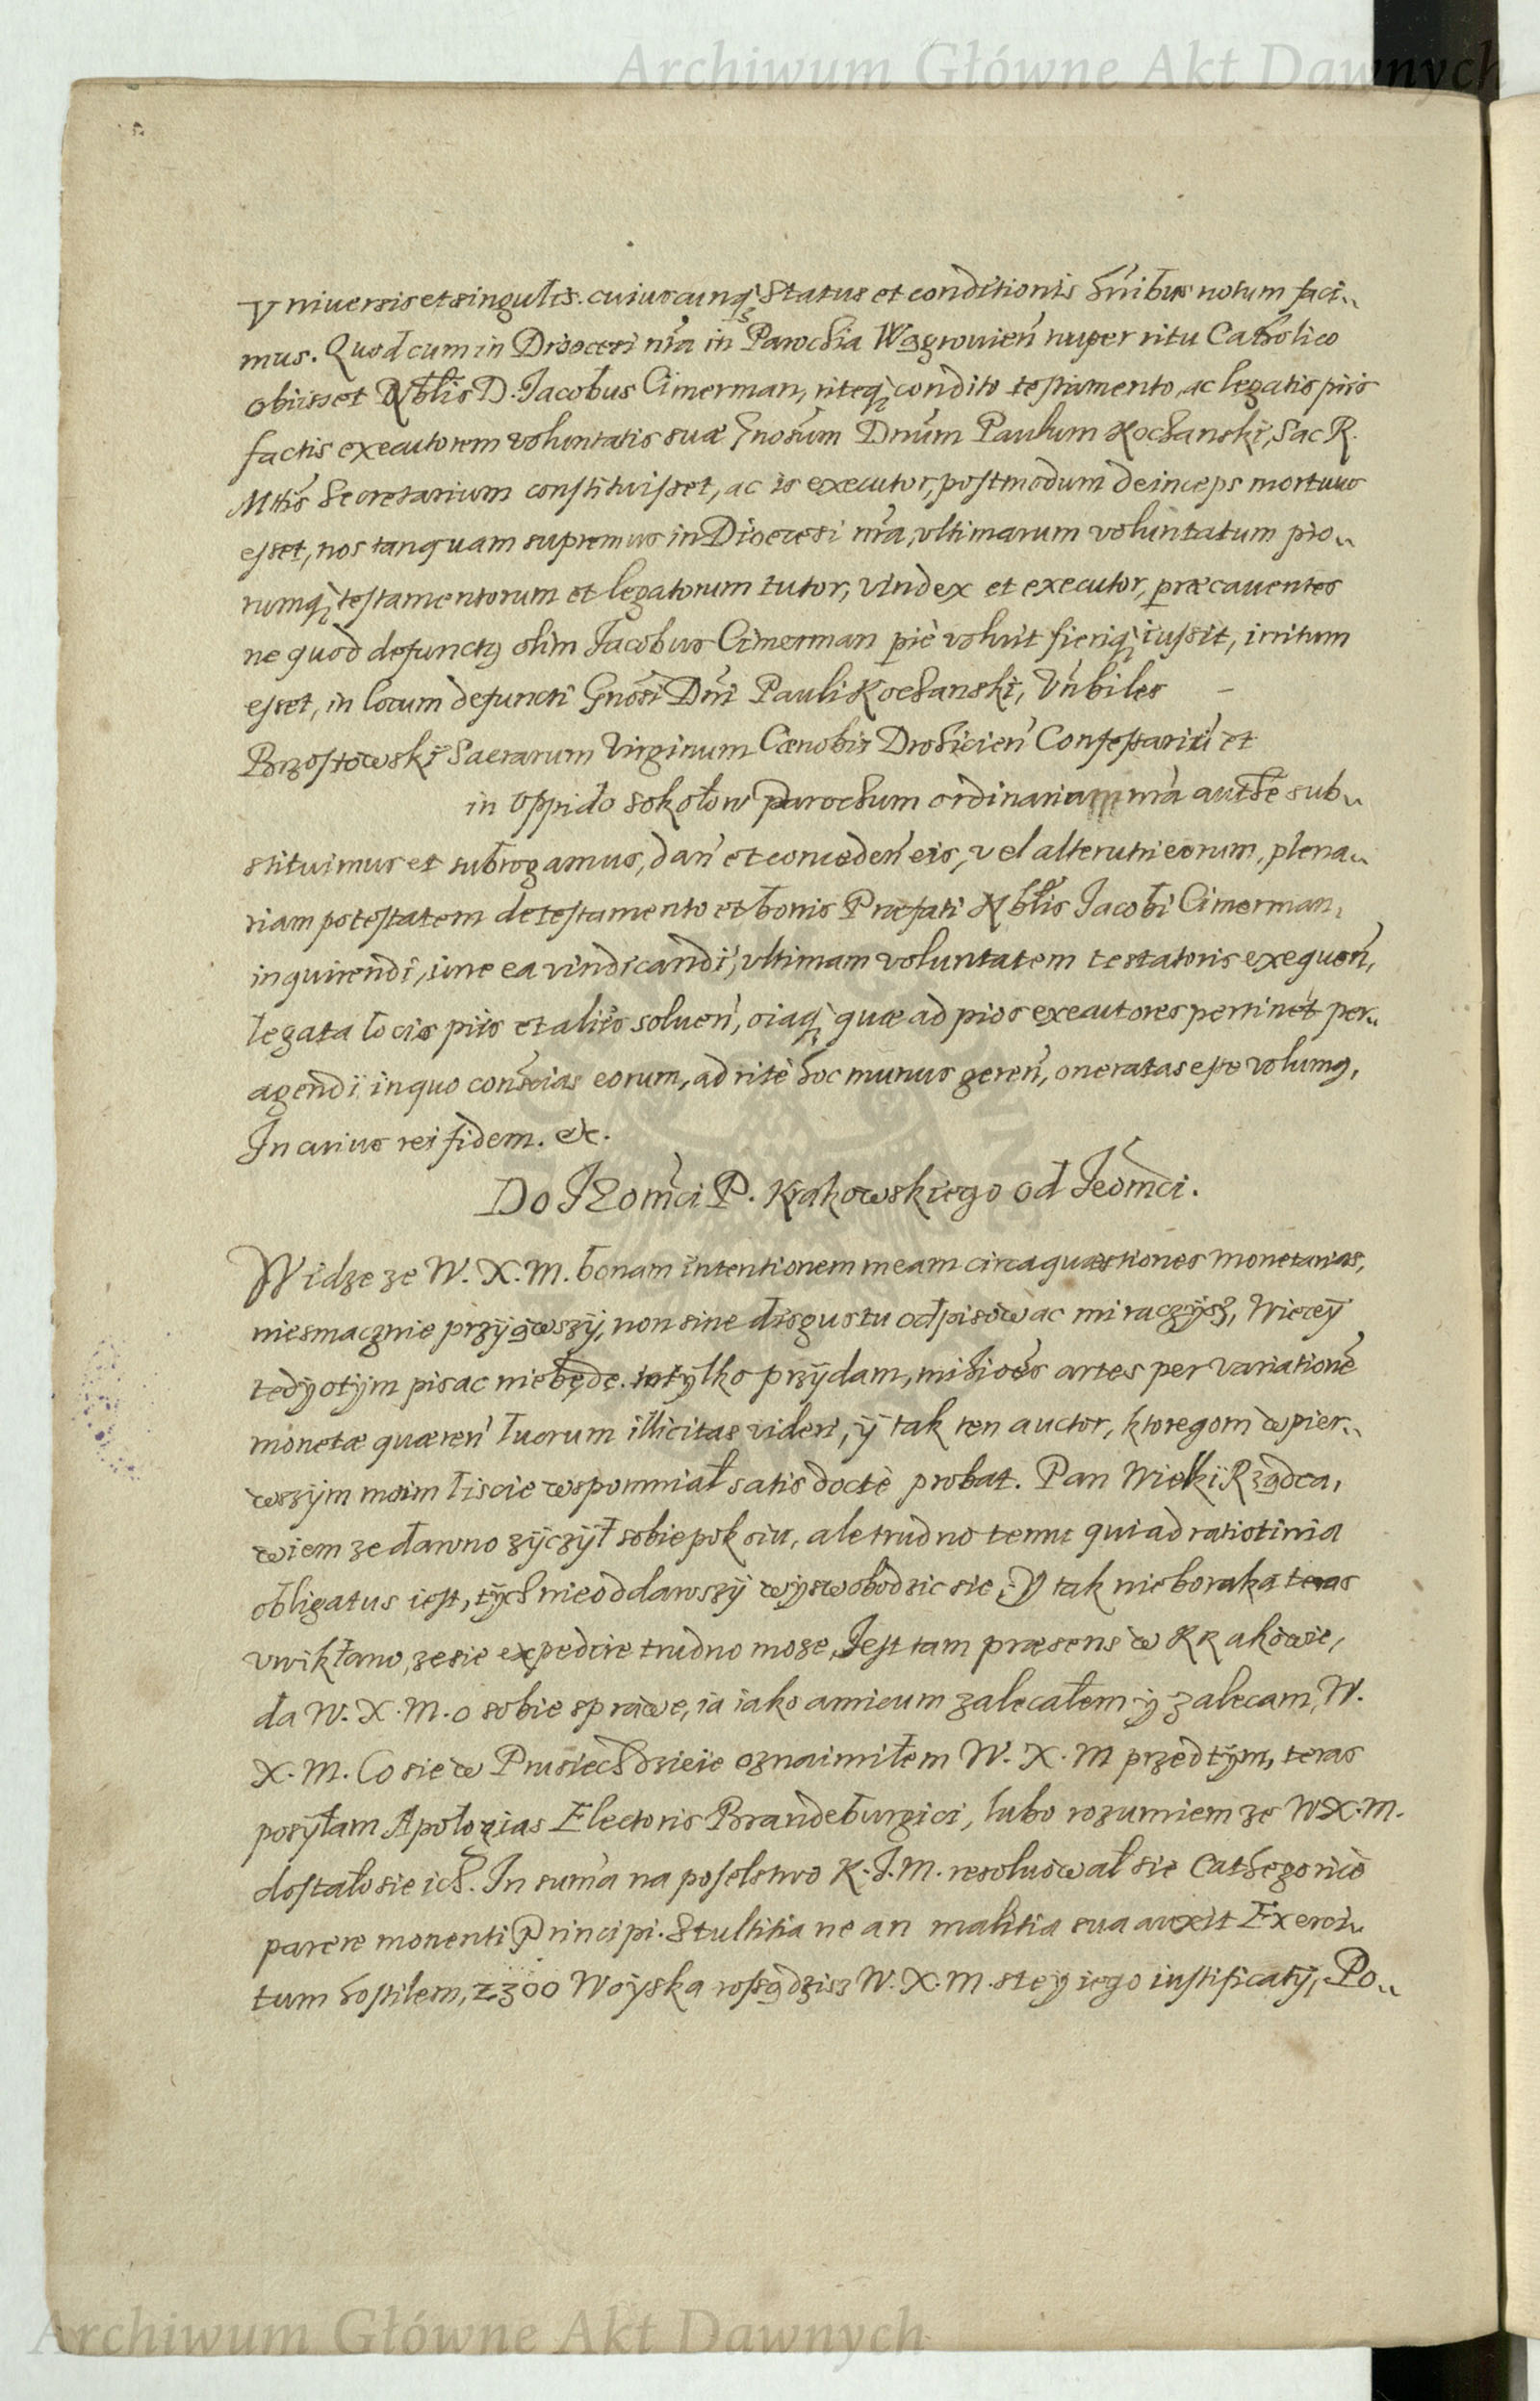 Archiwum Główne Akt Dawnych
Vniuersis et singulis. cuiuscunq; Status et conditionis hoĩbus notum faci„
mus. Quod cum in Dioecesi nrã in Parochia Wągrouień nuper ritu Catholico
obiisset Nblis D. Jacobus Cimerman, riteq; condito testamento, ac legatis piis
factis executorem voluntatis suæ Gnosum Dnum Paulum Kochanski, Sac R.
Mttis Secretarium constituisset, ac is executor, postmodum deinceps mortuus
esset, nos tanquam supremus in Dioecesi nrã, vltimarum voluntatum pio„
rumq; testamentorum et legatorum tutor, vindex et executor, præcauentes
ne quod defunctq olim Jacobus Cimerman piè voluit fieriq; iussit, irritum
esset, in locum defuncti Gnosi Dni Pauli Kochanski, Vnbiles –
Brzostowski Sacrarum Virginum Cœnobii Drohicień Confessariũ et
in Oppido Sokołow parochum ordinarium nrã auththe sub„
stituimus et subrogamus, dań et concedeń eis, vel alterutri eorum, plena„
riam potestatem de testamento et bonis Præfati Nblis Jacobi Cimerman,
inquirendi, iure ea vindicandi, vltimam voluntatem testatoris exequeń,
legata locis piis et aliis solueń, oiaq; quæ ad pios executores pertinet per„
agendi, in quo conscias eorum, ad ritè hoc munus gereń, oneratas esse volumq,
In cuius rei fidem. &c.
Do JEomci P. Krakowskiego od Jeomci.
Widze ze W. X. M. bonam intentionem meam circa quæstiones monetarias,
niesmacznie przyiąwszy, non sine disgustu odpisowac mi raczysz, Wiecey
tedy o tym pisac niebędę. to tylko przydam, mihi oẽs artes per variationẽ
monetæ quæreń lucrum illicitas videri, y tak ten auctor, ktoregom w pier„
wszym moim liscie wspomniał satis doctè probat. Pan Wielki Rządca,
wiem ze dawno zyczył sobie pokoiu, ale trudno temu qui ad ratiotinia
obligatus iest, tych nieoddawszy wyswobodzic sie, Y tak nieboraka teras
vwikłano, ze sie expedire trudno moze, Jest tam præsens w Krakowie,
da W. X. M. o sobie sprawe, ia iako amicum zalecałem y zalecam, W.
X. M. Co sie w Prusiech dzieie oznaimiłem W. X. M przedtym, teras
posyłam Apologias Electoris Brandeburgici, lubo rozumiem ze W X. M.
dostało sie ich. In suma na poselstwo K. J. M. resoluował sie Cathegoricè
parere monenti Principi. Stultitia ne an malitia sua auxit Exerci„
tum hostilem, z 300 Woyska rossądzisz W. X. M. stey iego iustificaty, Po„
Archiwum Główne Akt Dawnych